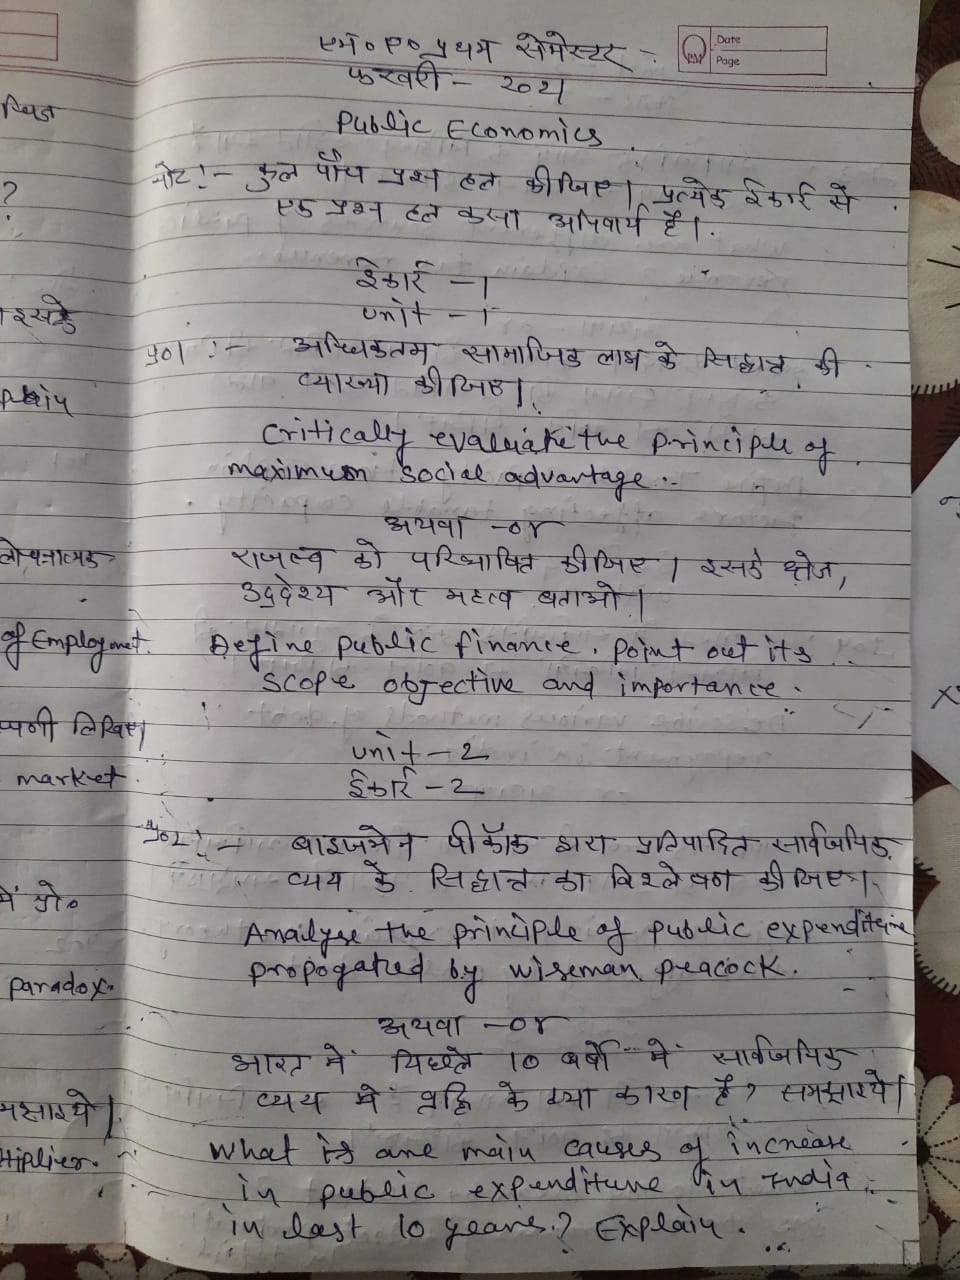 एम० ए० प्रथम सेमेस्टर -
Date
Page
फरवरी - २०२१
Public Economics
नोट! - कुल पाँच प्रश्न हल कीजिए। प्रत्येक ईकाई से
एक प्रश्न हल करना अनिवार्य है।
ईकाई - 1
unit - 1
प्र०1 :- अधिकतम सामाजिक लाभ के सिद्धान्त की
व्याख्या कीजिए।
critically evaluate the principle of
maximum social advantage :-
अथवा -or
राजस्व को परिभाषित कीजिए। इसके क्षेत्र,
उद्देश्य और महत्व बताओ।
Define public finance. Point out its
scope objective and importance.
unit - 2
ईकाई - 2
प्र०2 :- वाइजमेन पीकॉक द्वारा प्रतिपादित सार्वजनिक
व्यय के सिद्धान्त का विश्लेषण कीजिए।
Analyse the principle of public expenditure
propogated by wiseman peacock.
अथवा -or
भारत में पिछले 10 वर्षों में सार्वजनिक
व्यय में वृद्धि के क्या कारण हैं? समझाइये।
What is are main causes of increase
in public expenditure in India
in last 10 years.? Explain.
?
इसके
of Employmet.
प्पणी लिखिए।
market
में प्रो०
paradox.
मझाइये।
tiplier.